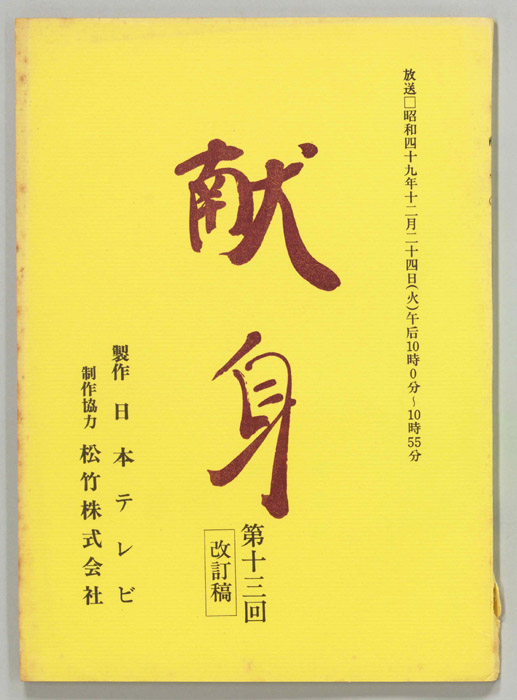 放送□昭和四十九年十二月二十四日(火)午后10時0分～10時55分
献身
第十三回
改訂稿
製作 日本テレビ
制作協力 松竹株式会社